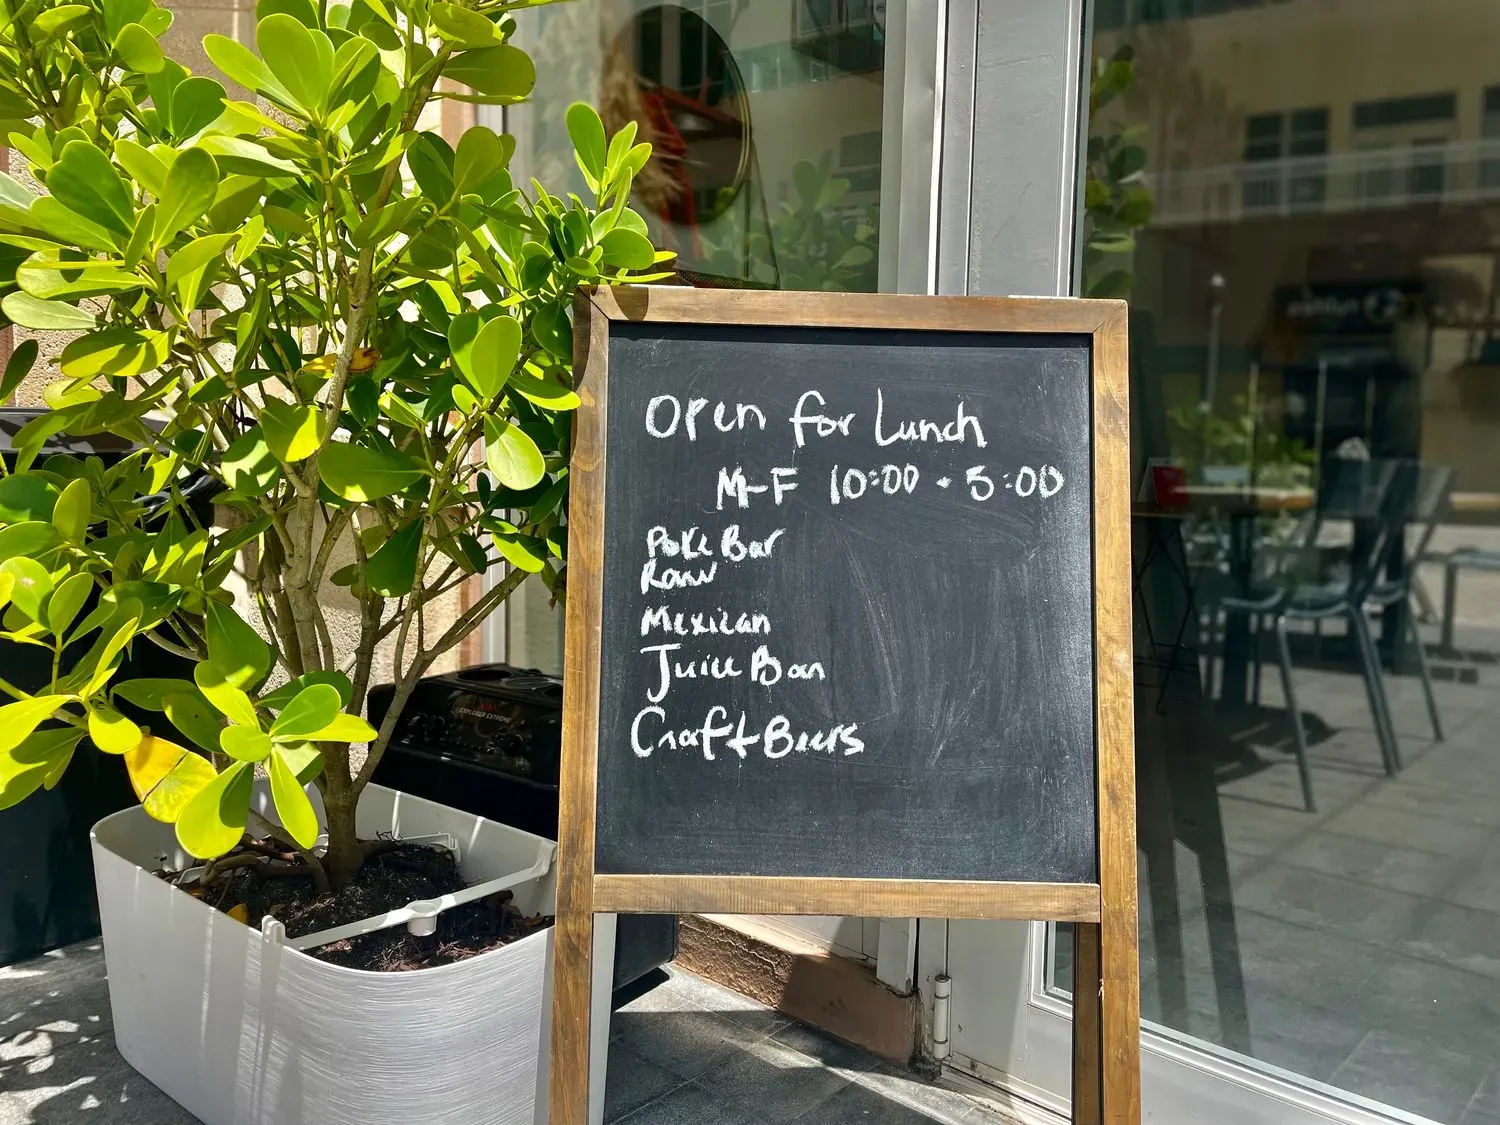 Open for Lunch
M-F 10:00 - 5:00
Poke Bar
Raw
Mexican
Juice Bar
Craft Beers
EXPLORER EXTREME